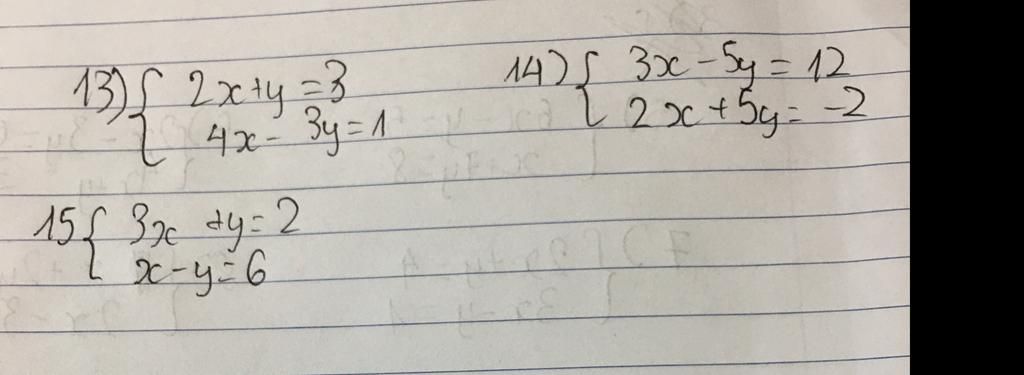 13) { 2x+y=3
4x-3y=1
14) { 3x-5y=12
2x+5y=-2
15 { 3x+y=2
x-y=6